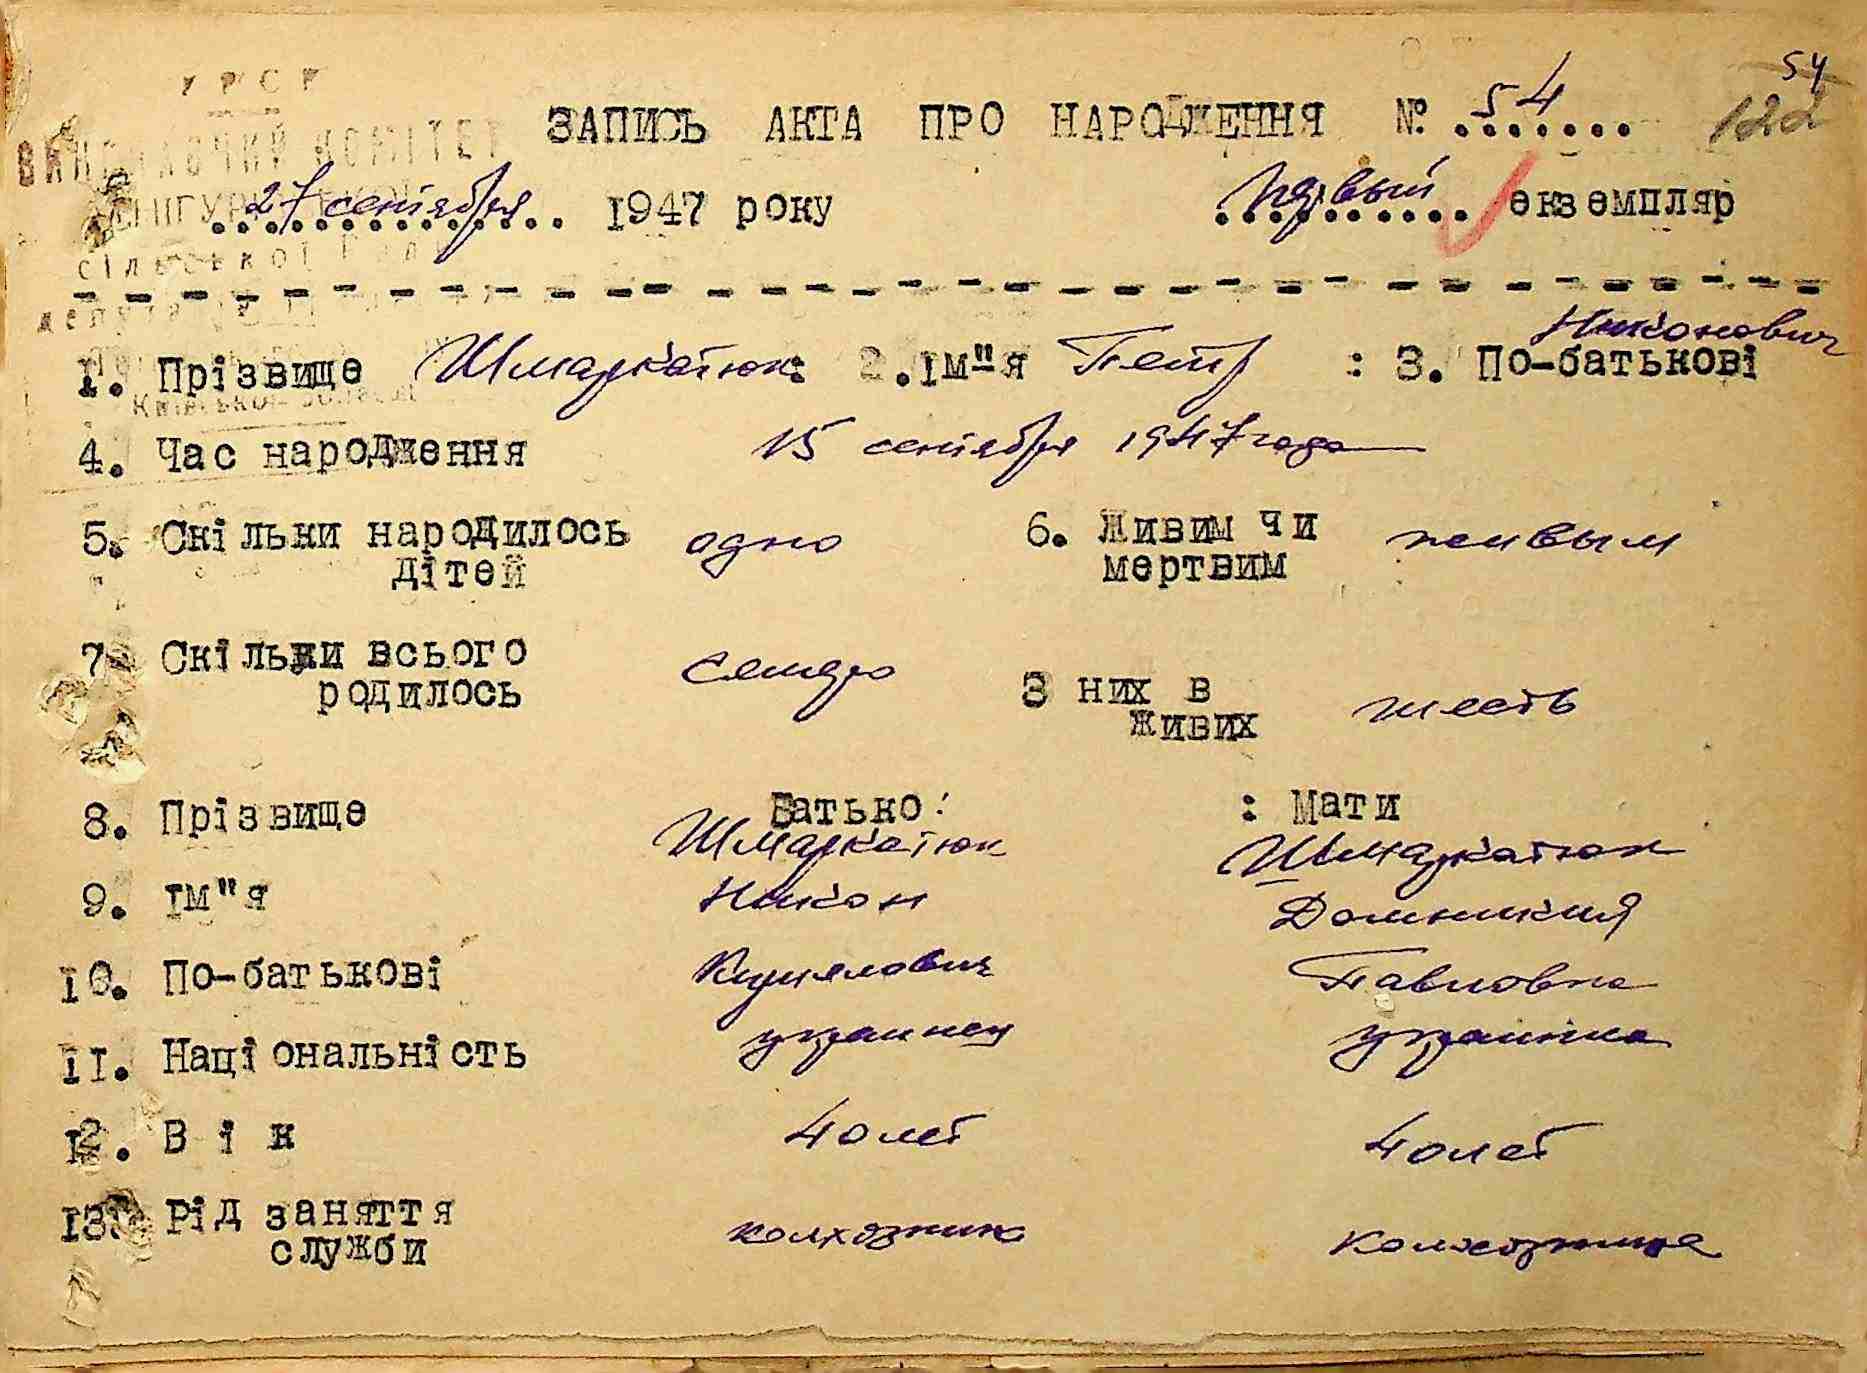 УРСР
ВИКОНАВЧИЙ КОМІТЕТ
сільської Ради
54
122
ЗАПИСЬ АКТА ПРО НАРОДЖЕННЯ № 54
27 сентября 1947 року первый екземпляр
Никонович
1. Прізвище Шмаркатюк: 2. ім"я Петр : 3. По-батькові
Київської області
4. Час народження 15 сентября 1947 года
5. Скільки народилось одно 6. Живим чи живым
дітей мертвим
7. Скільки всього семеро
родилось З них в шесть
живих
Батько: : Мати
8. Прізвище Шмаркатюк Шмаркатюк
9. ім"я Никон Домникия
10. По-батькові Павловна
11. Національність украинец украинка
12. Вік 40 лет 40 лет
13. Рід заняття колхозник колхозница
служби